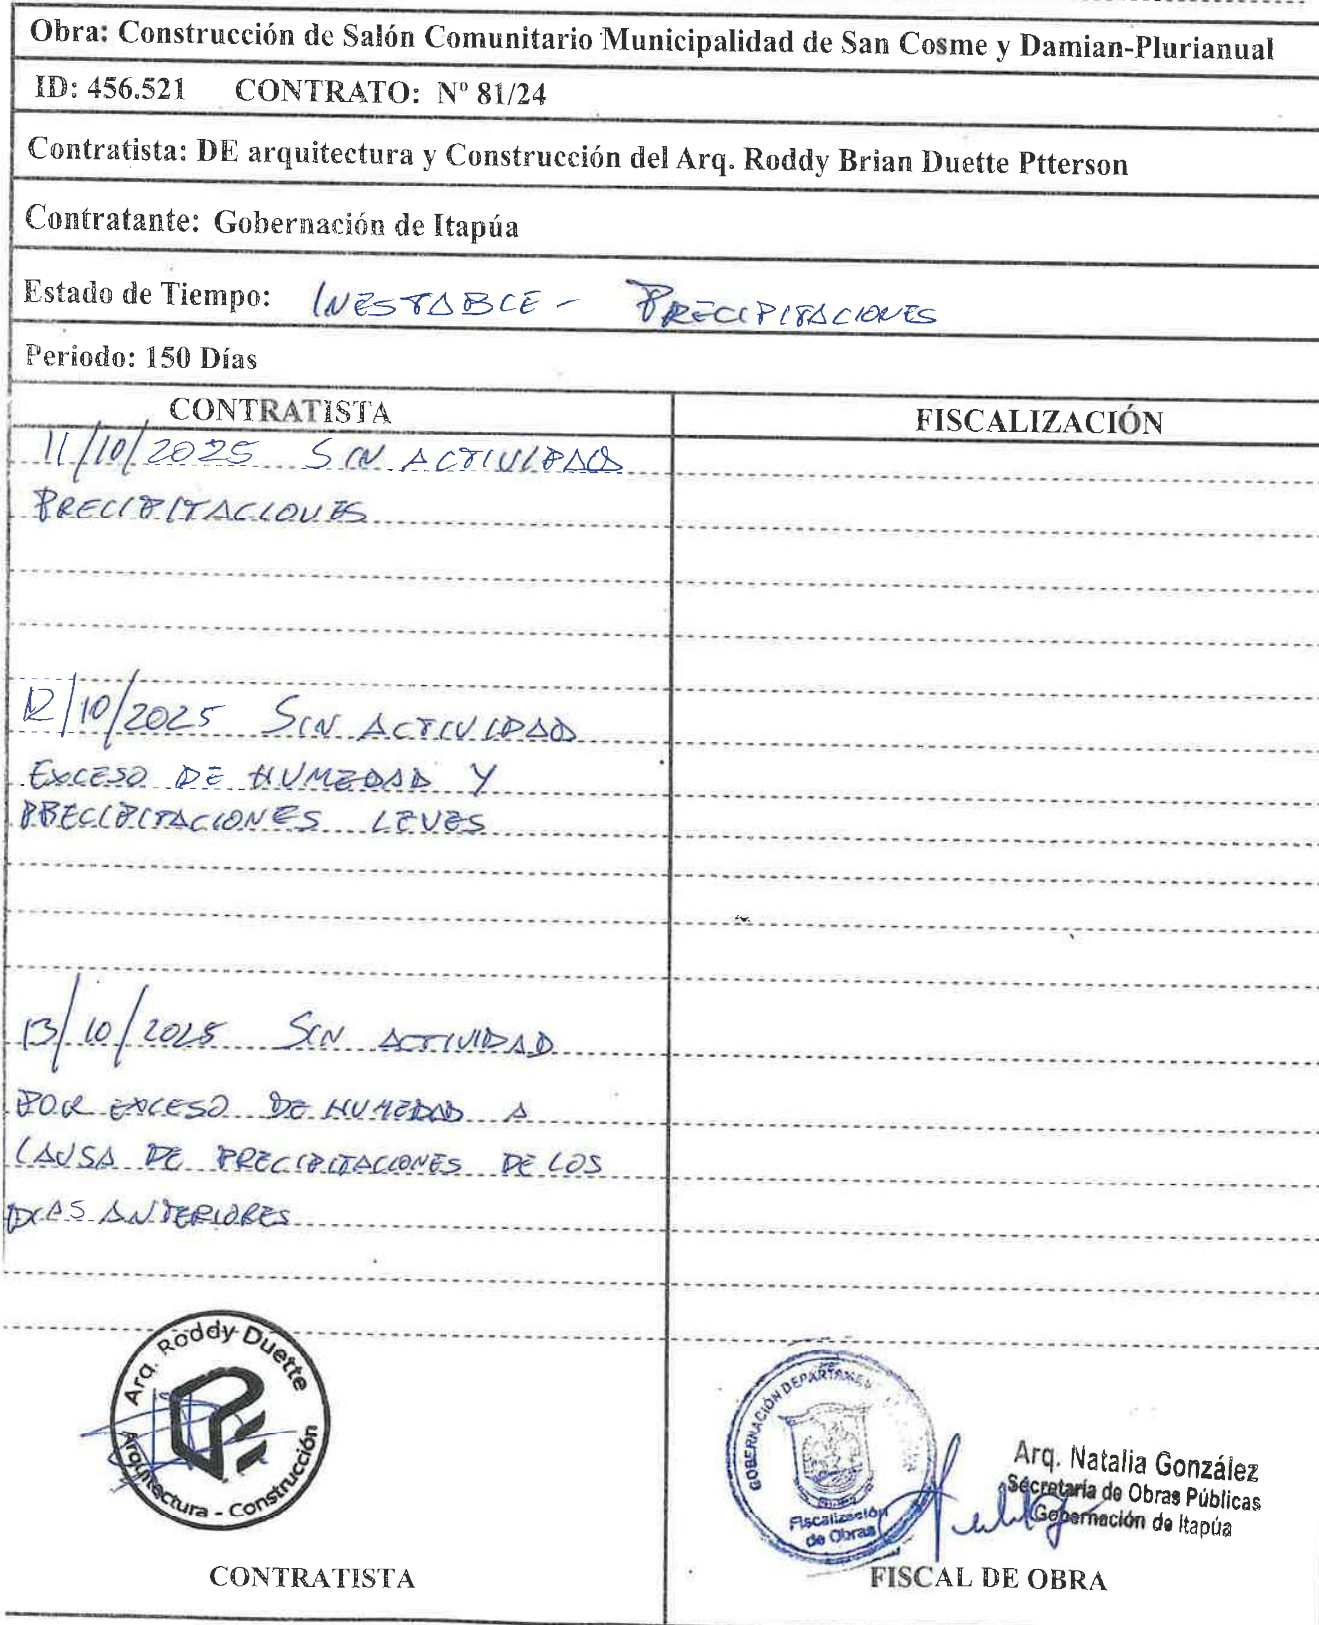 Obra: Construcción de Salón Comunitario Municipalidad de San Cosme y Damian-Plurianual
ID: 456.521 CONTRATO: Nº 81/24
Contratista: DE arquitectura y Construcción del Arq. Roddy Brian Duette Ptterson
Contratante: Gobernación de Itapúa
Estado de Tiempo: INESTABLE - PRECIPITACIONES
Periodo: 150 Días
CONTRATISTA
FISCALIZACIÓN
11/10/2025 SIN ACTIVIDAD
PRECIPITACIONES
12/10/2025 SIN ACTIVIDAD
EXCESO DE HUMEDAD Y
PRECIPITACIONES LEVES
13/10/2025 SIN ACTIVIDAD
POR EXCESO DE HUMEDAD A
CAUSA DE PRECIPITACIONES DE LOS
DIAS ANTERIORES
Arq. Roddy Duette
Arquitectura - Construcción
CONTRATISTA
GOBERNACIÓN
Fiscalización
de Obras
Arq. Natalia González
Secretaría de Obras Públicas
Gobernación de Itapúa
FISCAL DE OBRA